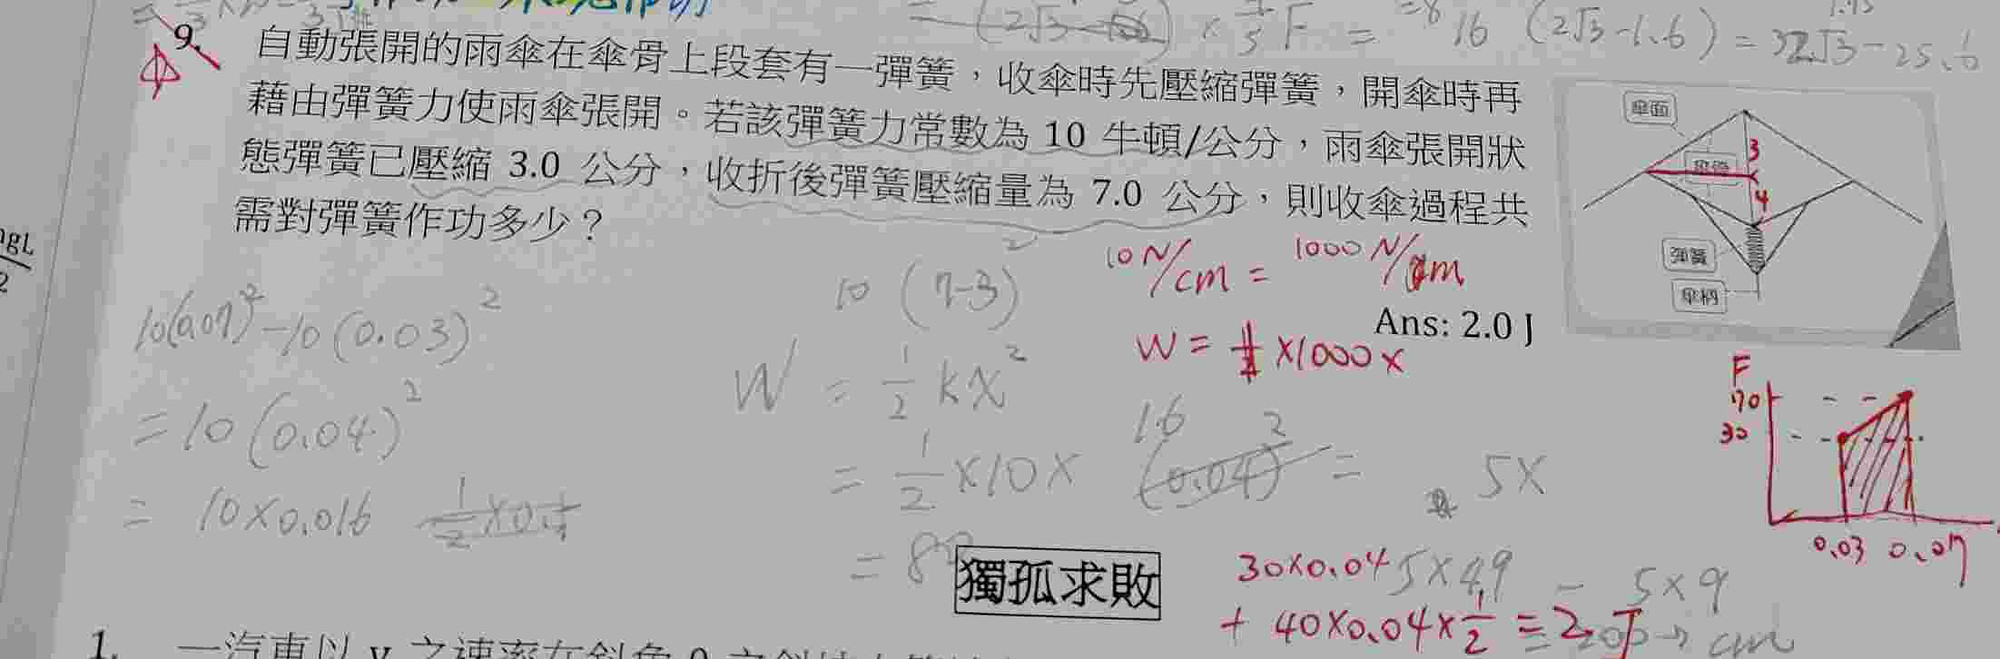 (2√3-1.6) × 1/5 F = 16 (2√3-1.6) = 32√3-25.6
9. 自動張開的雨傘在傘骨上段套有一彈簧，收傘時先壓縮彈簧，開傘時再
藉由彈簧力使雨傘張開。若該彈簧力常數為 10 牛頓/公分，雨傘張開狀
態彈簧已壓縮 3.0 公分，收折後彈簧壓縮量為 7.0 公分，則收傘過程共
需對彈簧作功多少？
傘面
3
4
彈簧
傘柄
10 N/cm = 1000 N/m
10 (7-3)²
Ans: 2.0 J
10(0.07)²-10(0.03)²
W = ½kx²
W = ½ ×1000×
= 10(0.04)²
= ½×10× 1.6 (0.04)² = 5×
= 10×0.016 ½×0.1
= 8
F
70
30
0.03 0.07
獨孤求敗
30×0.04 5×49 - 5×9
+ 40×0.04×½ = 2 J
→ cm
1. 一汽車以 v 之速率在斜角 θ